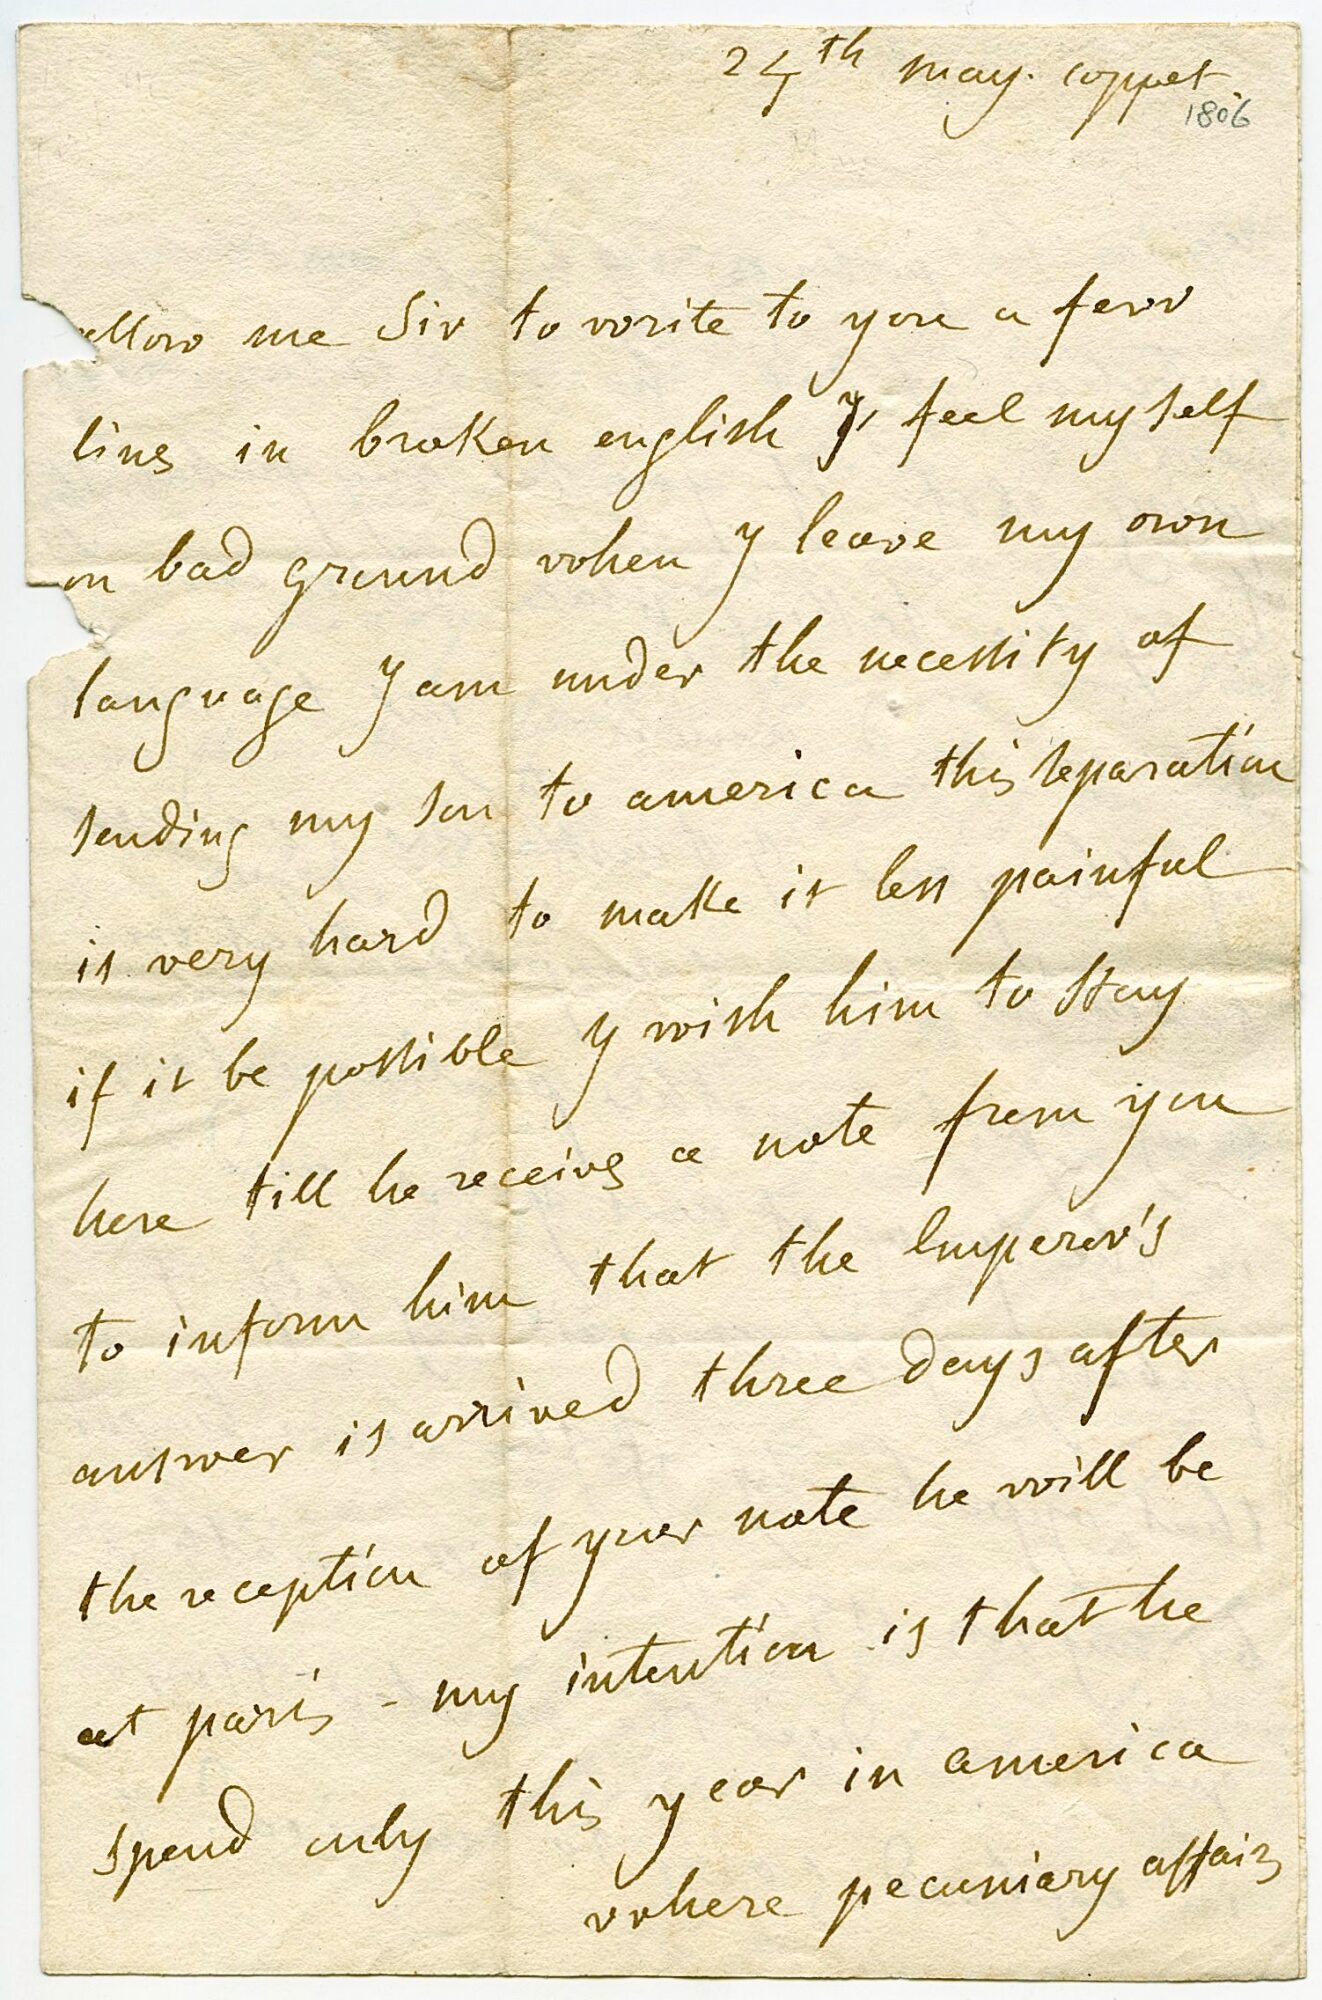 24th may. coppet
1806
allow me Sir to write to you a few
lines in broken english y feel myself
on bad ground when y leave my own
language y am under the necessity of
sending my son to america this separation
is very hard to make it less painful
if it be possible y wish him to stay
here till he receives a note from you
to inform him that the Emperor's
answer is arrived three days after
the reception of your note he will be
at paris - my intention is that he
spend only this year in america
where pecuniary affairs